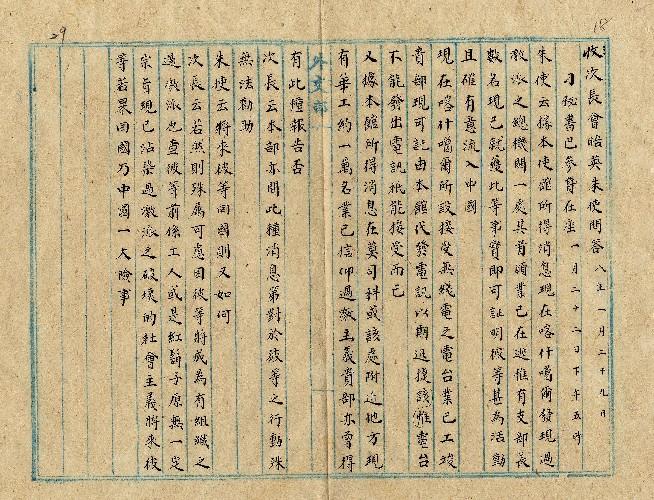 29
18
收次長會晤英朱使問答 八年一月二十九日
刁祕書巴參贊在座 一月二十二日下午五時
朱使云據本使館所得消息現在喀什噶爾發現過
激派之總機關一處其首領業已在逃惟有支部長
數名現已就獲此等事實即可証明彼等甚為活動
且確有意流入中國
現在喀什噶爾所設接受無綫電之電台業已工竣
貴部現可託由本館代發電訊以期迅捷該電台
不能發出電訊祇能接受而已
又據本館所得消息在莫司科或該處附近地方現
外交部
有華工約一萬名業已信仰過激主義貴部亦曾得
有此種報告否
次長云本部亦聞此種消息第對於彼等之行動殊
無法勸助
朱使云將來彼等回國則又如何
次長云若然則殊屬可慮因彼等將成為有組織之
過激派也查彼等前係工人或是紅鬍子原無一定
宗旨現已沾染過激派之破壞的社會主義將來彼
等若果回國乃中國一大險事